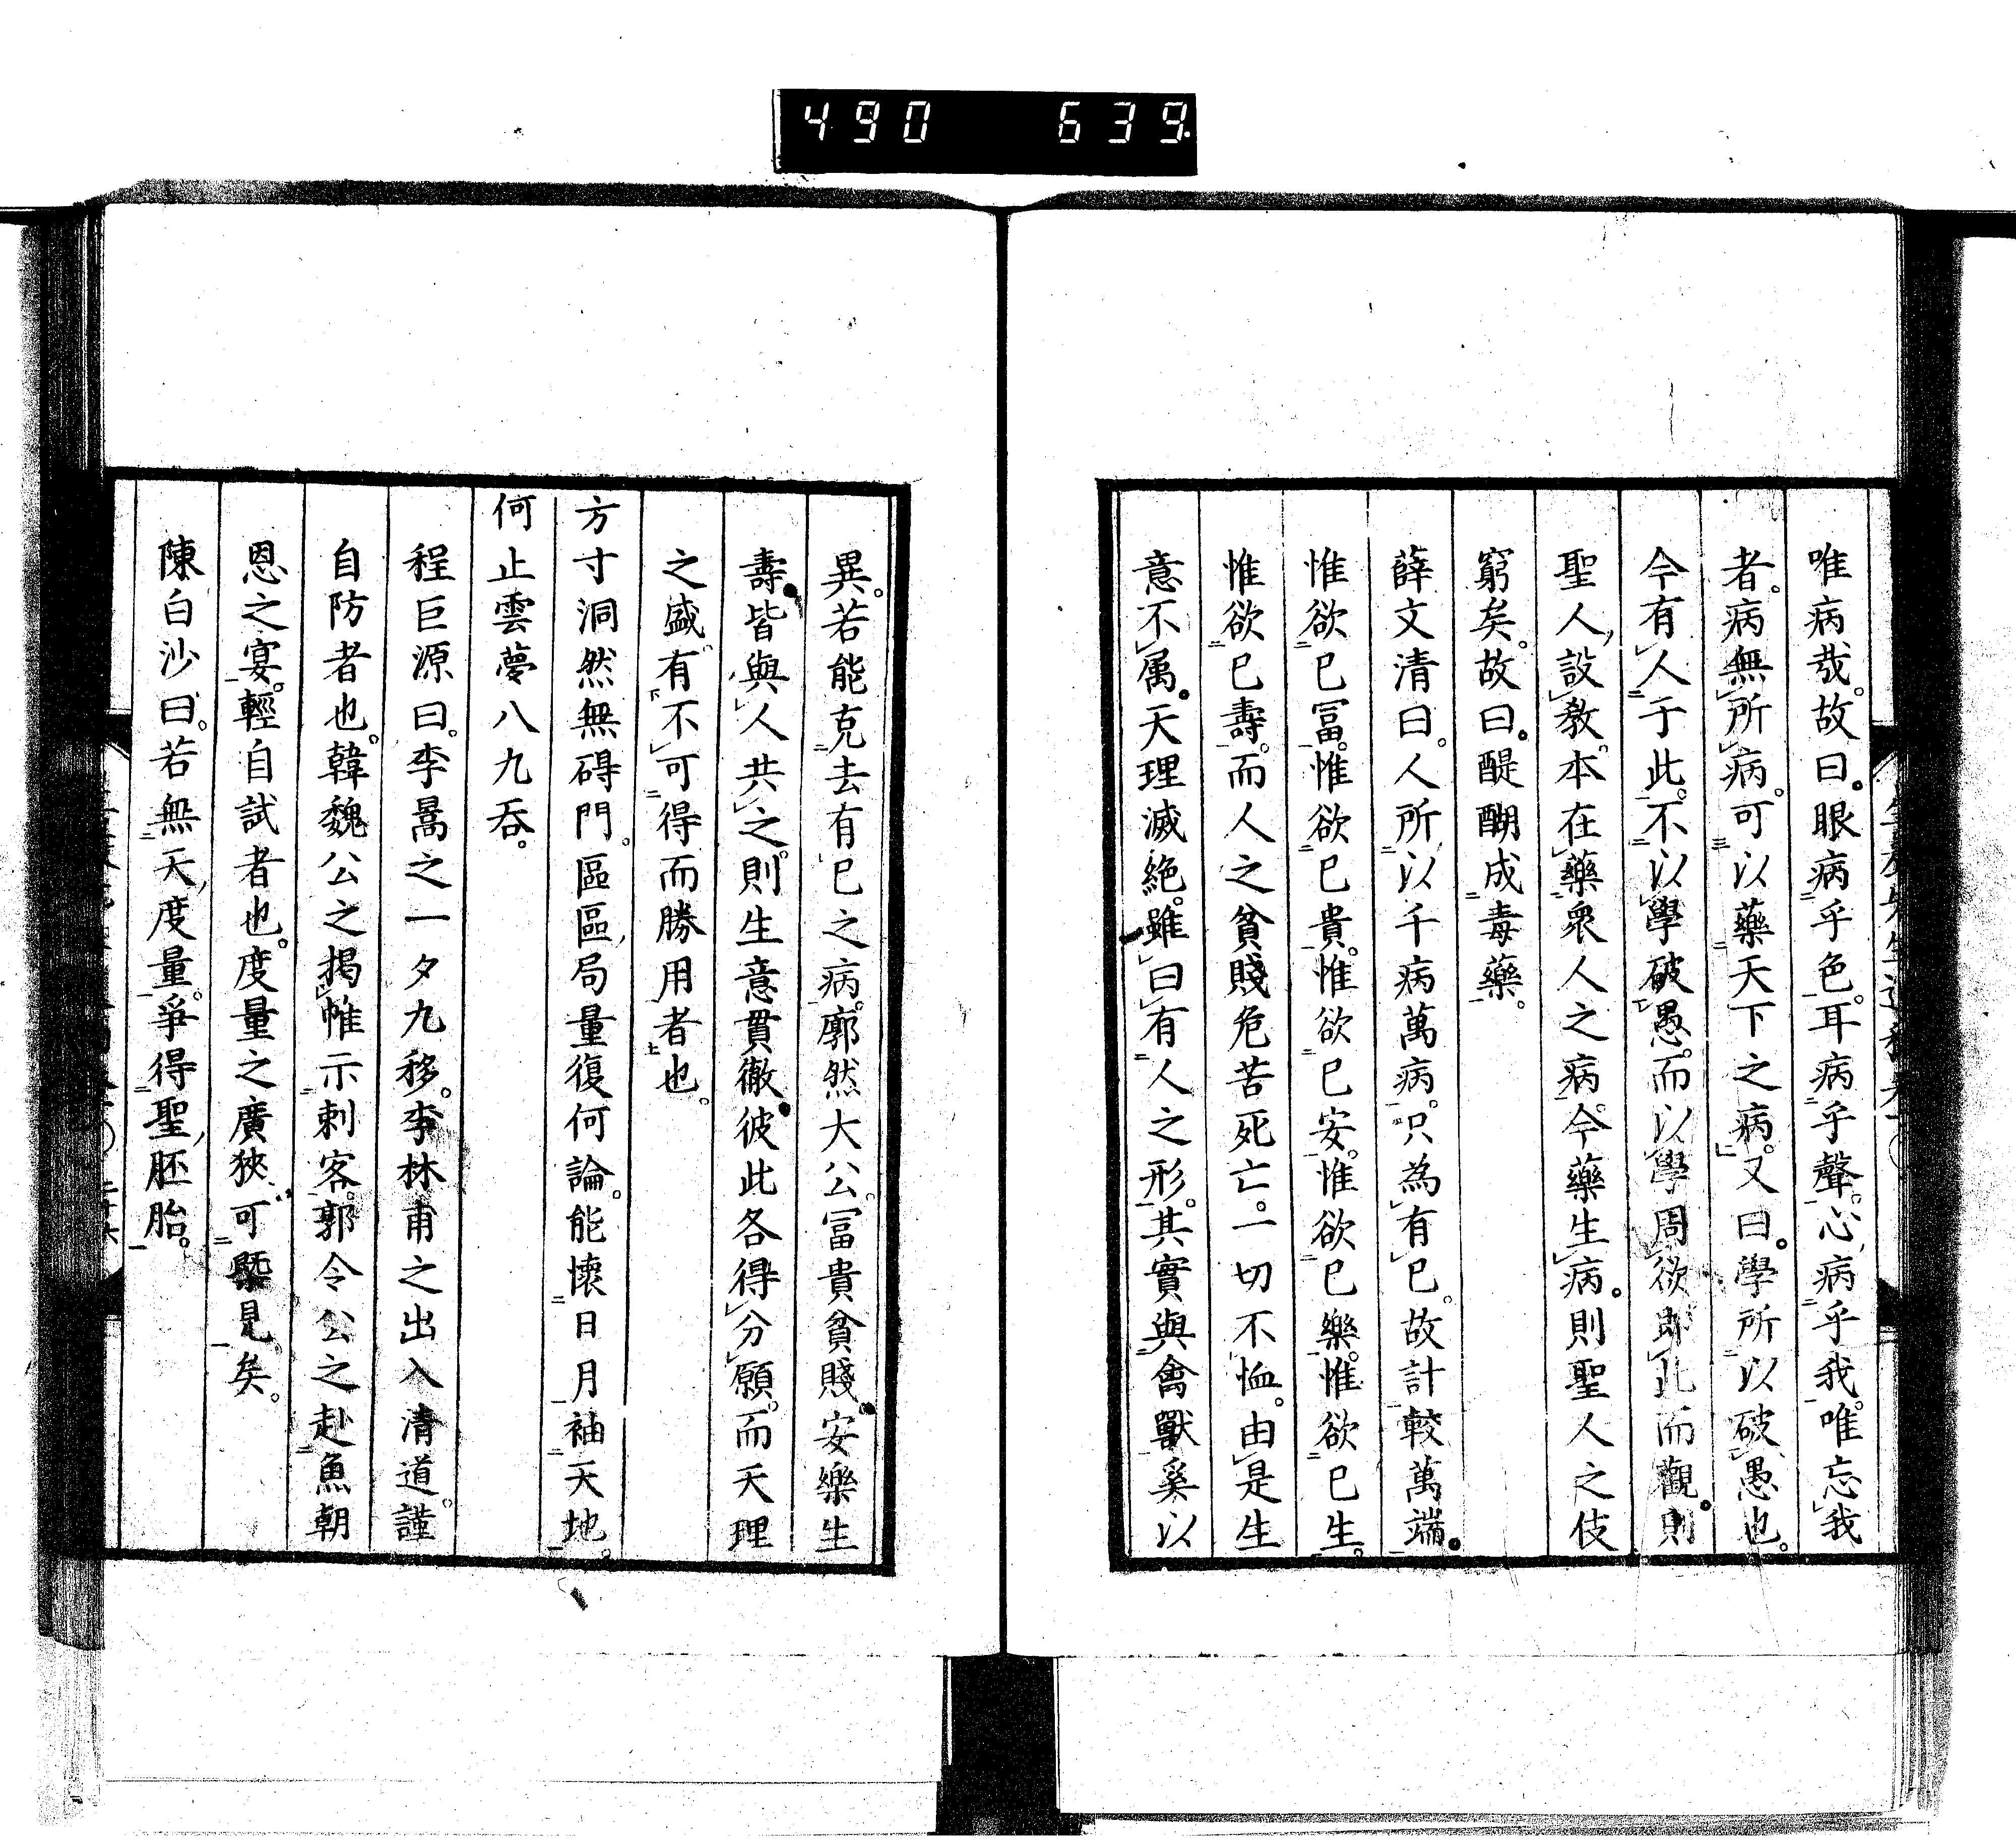 490 639
唯病哉。故曰。眼病乎色。耳病乎聲。心病乎我。唯忘我
者。病無所病。可以藥天下之病。又曰。學所以破愚也。
今有人于此。不以學破愚。而以學周欲。即此而觀。則
聖人設教。本在藥衆人之病。今藥生病。則聖人之伎
窮矣。故曰。醍醐成毒藥。
薛文清曰。人所以千病萬病。只為有己。故計較萬端。
惟欲己冨。惟欲己貴。惟欲己安。惟欲己樂。惟欲己生。
惟欲己壽。而人之貧賤危苦死亡。一切不恤。由是生
意不属。天理滅絶。雖曰有人之形。其實與禽獸奚以
異。若能克去有己之病。廓然大公。冨貴貧賤。安樂生
壽。皆與人共之。則生意貫徹。彼此各得分願。而天理
之盛。有不可得而勝用者也。
方寸洞然無碍門。區區局量復何論。能懷日月袖天地。
何止雲夢八九吞。
程巨源曰。李暠之一夕九移。李林甫之出入清道。謹
自防者也。韓魏公之揭帷示刺客。郭令公之赴魚朝
恩之宴。輕自試者也。度量之廣狹。可槩見矣。
陳白沙曰。若無天度量。爭得聖胚胎。